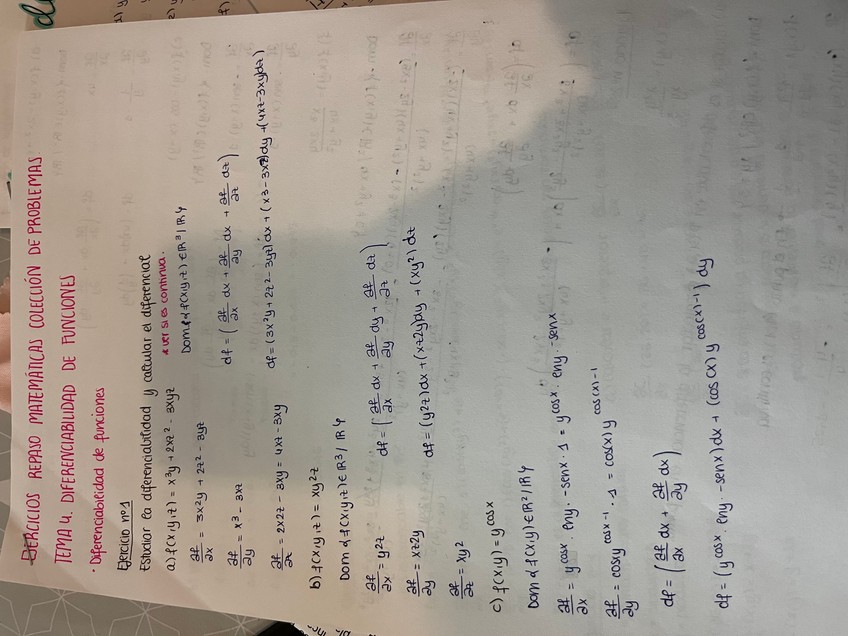 EJERCICIOS REPASO MATEMÁTICAS COLECCIÓN DE PROBLEMAS
TEMA 4. DIFERENCIABILIDAD DE FUNCIONES
· Diferenciabilidad de funciones
Ejercicio nº1
Estudiar la diferenciabilidad y calcular el diferencial
* ver si es continua.
a) f(x,y,z) = x³y + 2xz² - 3xyz
Dom f d f(x,y,z) ∈ R³ / R }
∂f/∂x = 3x²y + 2z² - 3yz
df = ( ∂f/∂x dx + ∂f/∂y dx + ∂f/∂z dz )
∂f/∂y = x³ - 3xz
df = (3x²y + 2z² - 3yz) dx + (x3 - 3xz) dy + (4xz - 3xy)dz)
∂f/∂z = 2x2z - 3xy = 4xz - 3xy
b) f(x,y,z) = xy²z
Dom d f(x,y,z) ∈ R³ / R }
∂f/∂x = y²z
df = ( ∂f/∂x dx + ∂f/∂y dy + ∂f/∂z dz )
∂f/∂y = xz2y
df = (y²z) dx + (xz2y) dy + (xy²) dz
∂f/∂z = xy²
c) f(x,y) = y^cosx
Dom d f(x,y) ∈ R² / R }
∂f/∂x = y^cosx · lny · -senx · 1 = y^cosx · lny · -senx
∂f/∂y = cosxy^cosx-1 · 1 = cos(x) y^cos(x)-1
df = ( ∂f/∂x dx + ∂f/∂y dx )
df = (y^cosx · lny · -senx) dx + (cos(x) y^cos(x)-1) dy